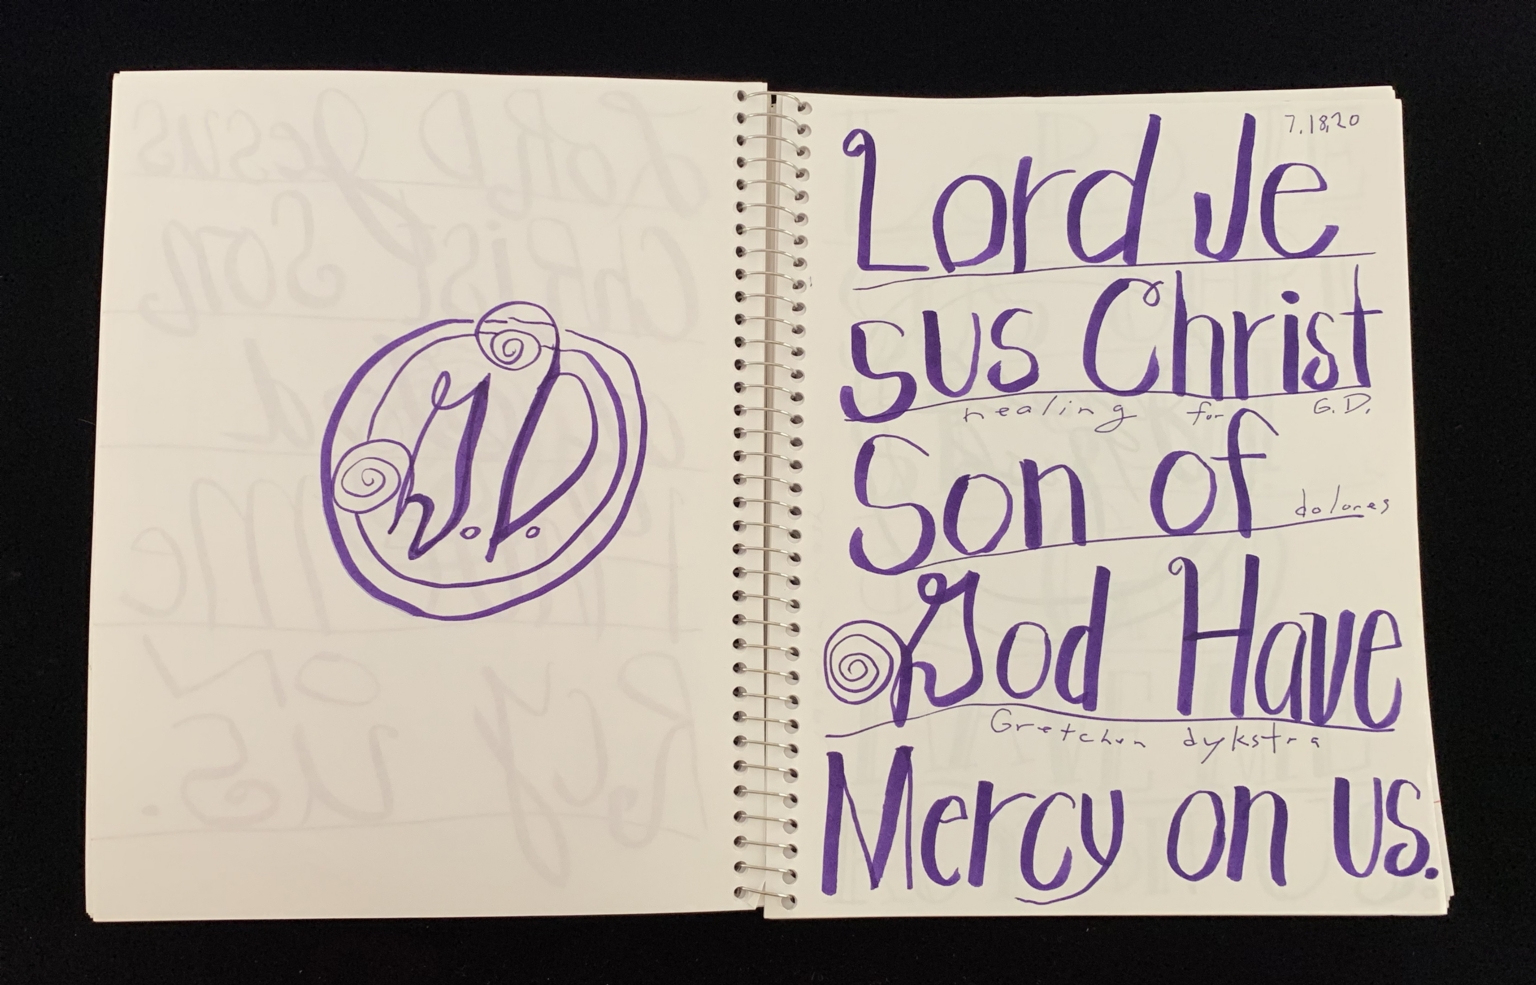 G.D.
7.18.20
Lord Je
sus Christ
healing for G.D.
Son of
dolores
God Have
Gretchen dykstra
Mercy on us.